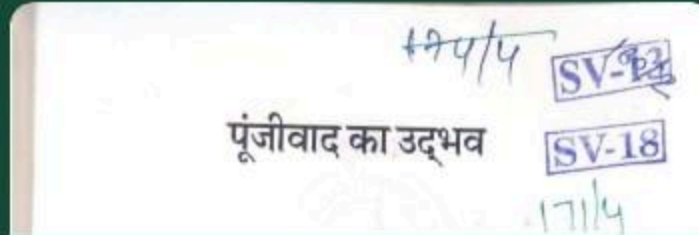 SV-
पूंजीवाद का उद्‌भव
SV-18
171/4